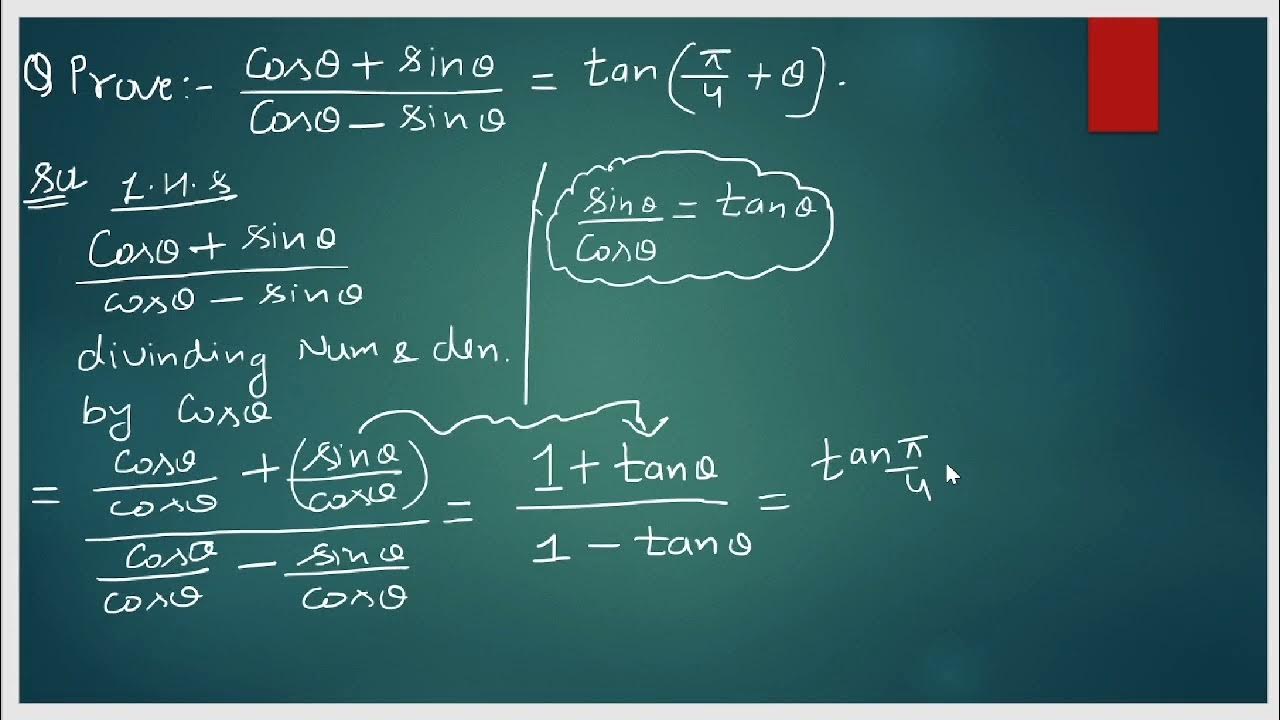 Q Prove:- (cosθ + sinθ)/(cosθ - sinθ) = tan(π/4 + θ).
Sol L.H.S
sinθ/cosθ = tanθ
(cosθ + sinθ)/(cosθ - sinθ)
divinding Num & den.
by cosθ
= (cosθ/cosθ + (sinθ/cosθ))/(cosθ/cosθ - sinθ/cosθ) = (1 + tanθ)/(1 - tanθ) = tan π/4